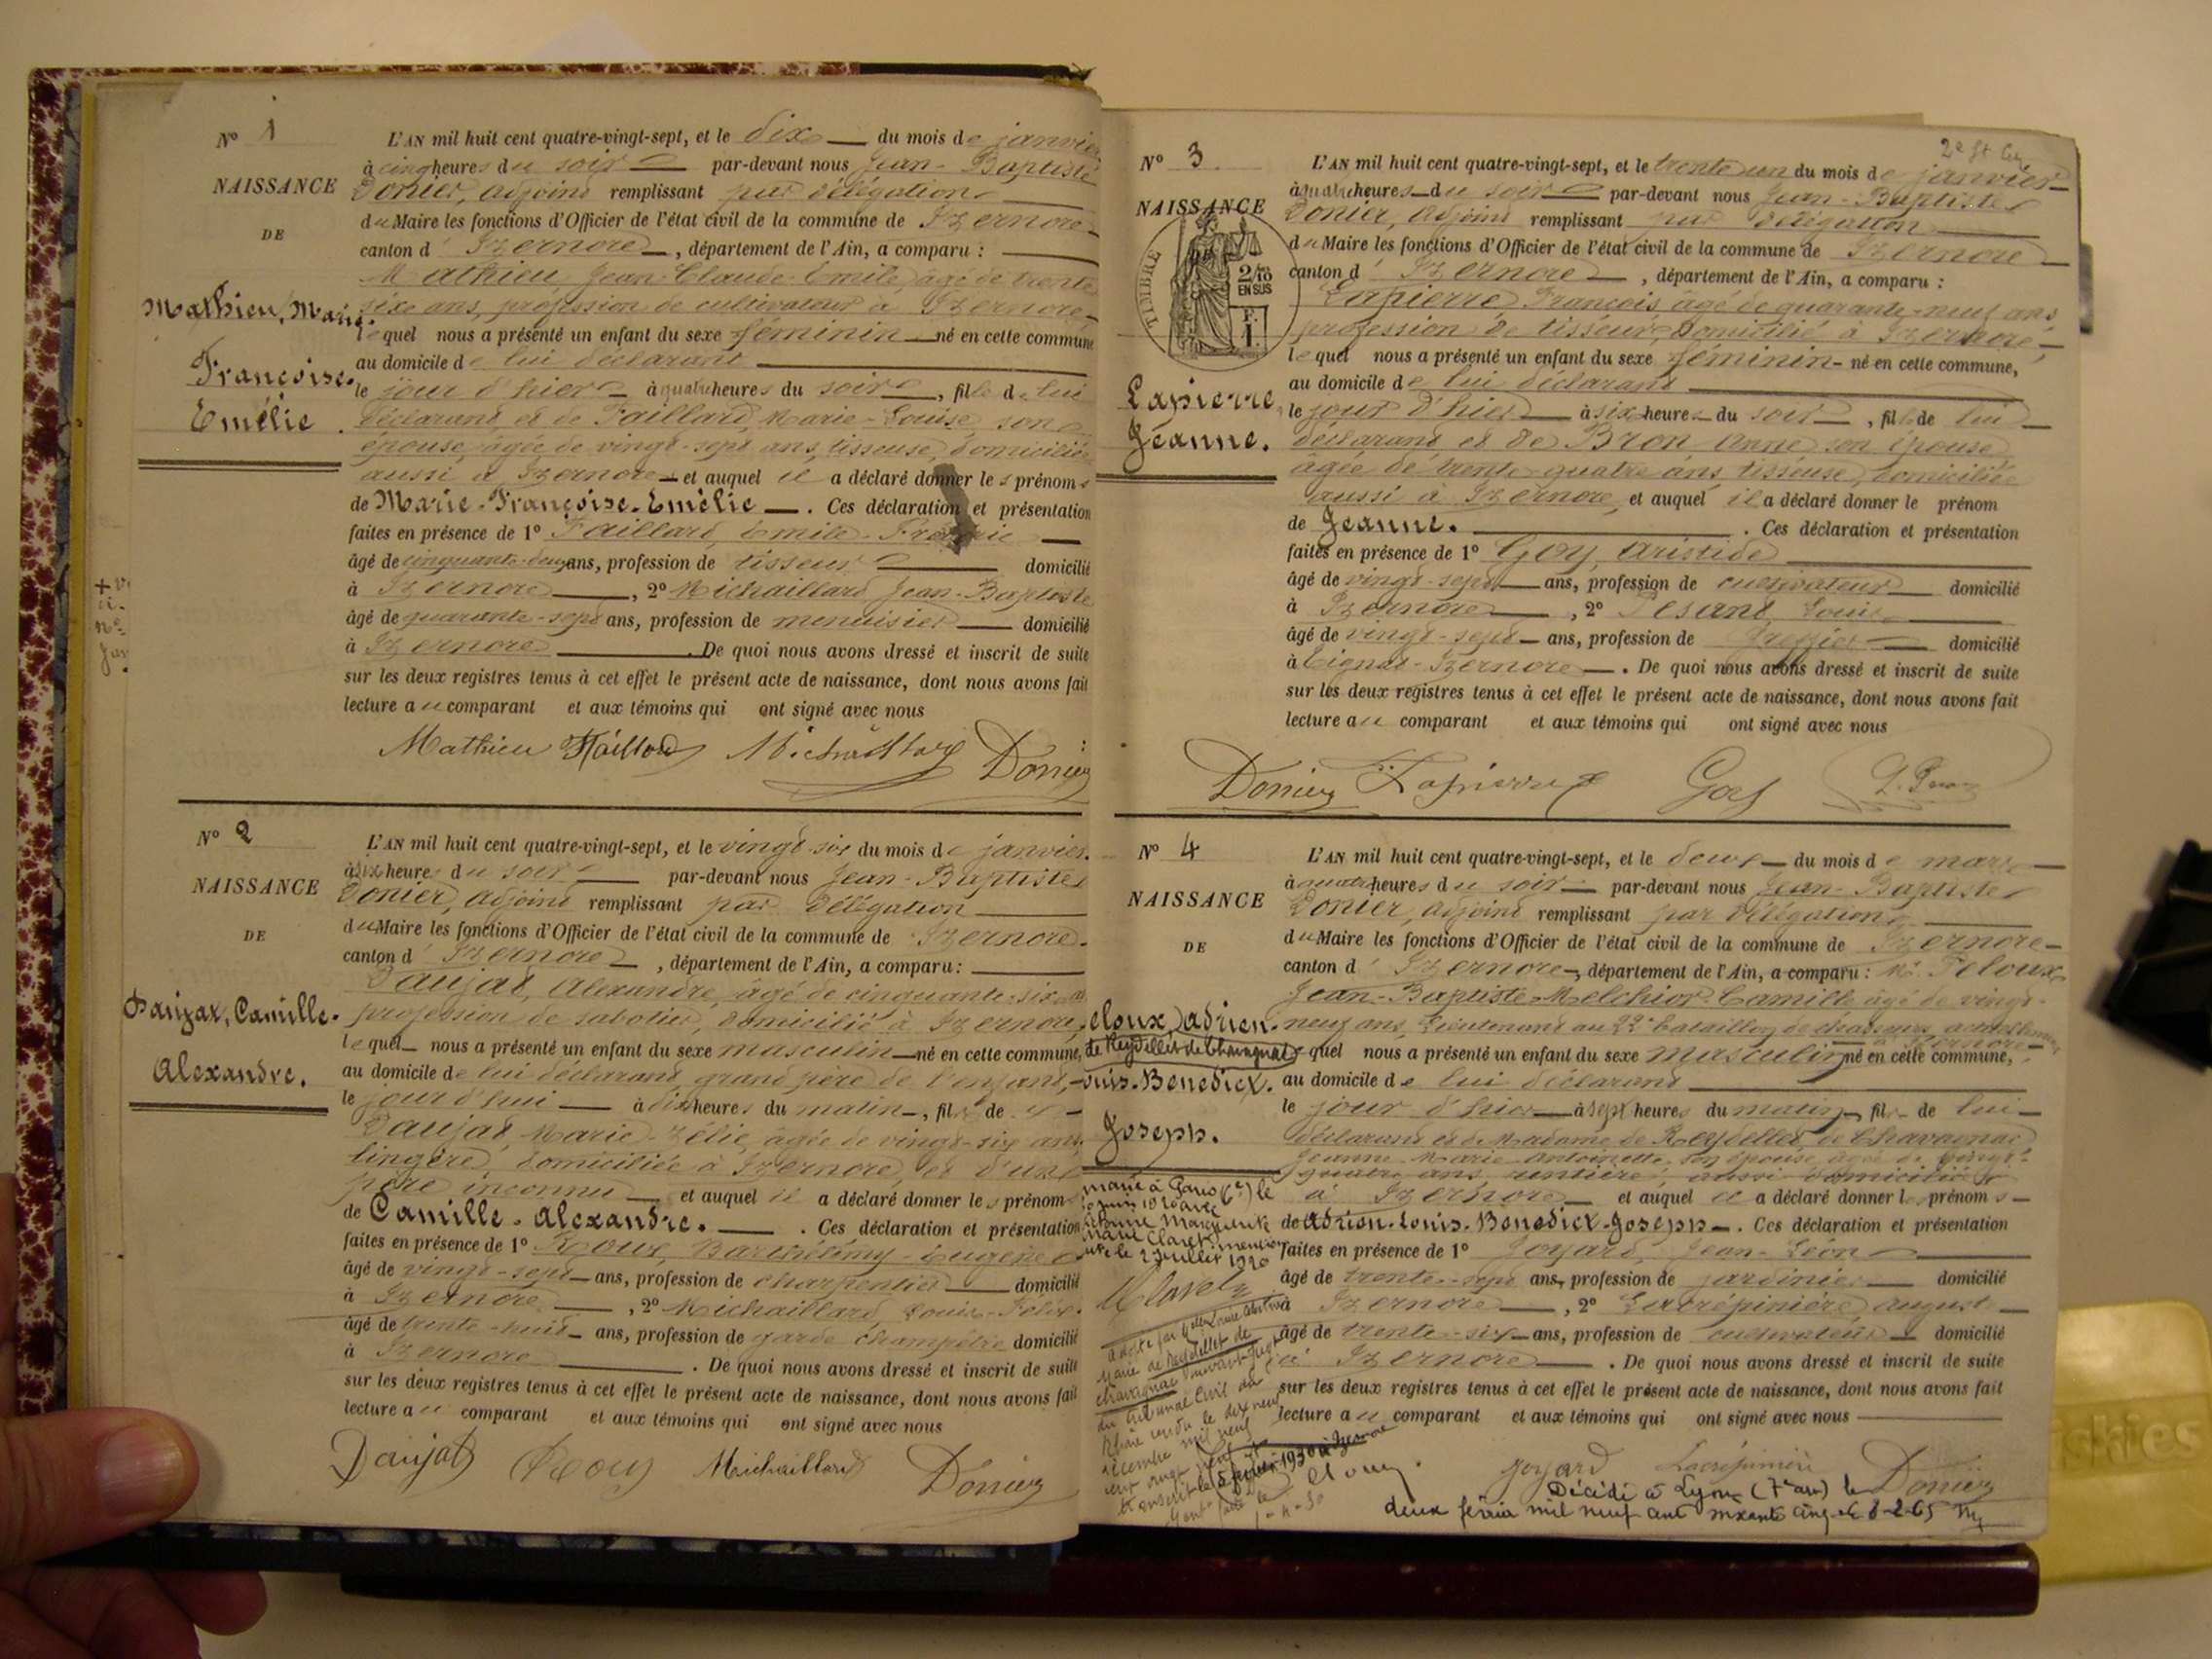 Nº 1
NAISSANCE
DE
Mathieu, Marie
Françoise
Emélie.
L'AN mil huit cent quatre-vingt-sept, et le dix du mois de janvier
à cinq heures du soir par-devant nous Jean-Baptiste
Donier, adjoint remplissant par délégation
du Maire les fonctions d'Officier de l'état civil de la commune de Izernore
canton d'Izernore, département de l'Ain, a comparu :
Mathieu, Jean-Claude-Emile, âgé de trente
six ans, profession de cultivateur à Izernore,
lequel nous a présenté un enfant du sexe féminin né en cette commune
au domicile de lui déclarant
le jour d'hier à quatre heures du soir, fille de lui
déclarant et de Faillard, Marie-Louise, son
épouse, âgée de vingt-sept ans, tisseuse, domiciliée
aussi à Izernore et auquel il a déclaré donner les prénoms
de Marie-Françoise-Emélie. Ces déclaration et présentation
faites en présence de 1º Faillard, Emile
âgé de cinquante-deux ans, profession de tisseur domicilié
à Izernore, 2º Michaillard Jean-Baptiste
âgé de quarante-sept ans, profession de menuisier domicilié
à Izernore. De quoi nous avons dressé et inscrit de suite
sur les deux registres tenus à cet effet le présent acte de naissance, dont nous avons fait
lecture au comparant et aux témoins qui ont signé avec nous
Mathieu Faillard Michaillard Donier
Nº 2
NAISSANCE
DE
Daujat, Camille.
Alexandre.
L'AN mil huit cent quatre-vingt-sept, et le vingt six du mois de janvier.
à six heures du soir par-devant nous Jean-Baptiste
Donier, adjoint remplissant par délégation
du Maire les fonctions d'Officier de l'état civil de la commune de Izernore.
canton d'Izernore, département de l'Ain, a comparu :
Daujat, Alexandre, âgé de cinquante-six ans
profession de sabotier, domicilié à Izernore,
lequel nous a présenté un enfant du sexe masculin né en cette commune,
au domicile de lui déclarant, grand père de l'enfant,
le jour d'hui à dix heures du matin, fils de
Daujat, Marie-Zélie, âgée de vingt-six ans,
lingère, domiciliée à Izernore, et d'un
père inconnu et auquel il a déclaré donner les prénoms
de Camille-Alexandre. Ces déclaration et présentation
faites en présence de 1º Roux, Barthélémy-Eugène
âgé de vingt-sept ans, profession de charpentier domicilié
à Izernore, 2º Michaillard, Louis-Félix.
âgé de trente-huit ans, profession de garde champêtre domicilié
à Izernore. De quoi nous avons dressé et inscrit de suite
sur les deux registres tenus à cet effet le présent acte de naissance, dont nous avons fait
lecture au comparant et aux témoins qui ont signé avec nous
Daujat Roux Michaillard Donier
Nº 3
NAISSANCE
TIMBRE
2/10
EN SUS
F.
1.
Lapierre,
Jeanne.
L'AN mil huit cent quatre-vingt-sept, et le trente un du mois de janvier
à quatre heures du soir par-devant nous Jean-Baptiste
Donier, adjoint remplissant par délégation
du Maire les fonctions d'Officier de l'état civil de la commune de Izernore
canton d'Izernore, département de l'Ain, a comparu :
Lapierre, François, âgé de quarante-neuf ans
profession de tisseur, domicilié à Izernore,
lequel nous a présenté un enfant du sexe féminin né en cette commune,
au domicile de lui déclarant
le jour d'hier à six heures du soir, fille de lui
déclarant et de Bron Anne son épouse
âgée de trente-quatre ans tisseuse, domiciliée
aussi à Izernore, et auquel il a déclaré donner le prénom
de Jeanne. Ces déclaration et présentation
faites en présence de 1º Goy, Aristide
âgé de vingt-sept ans, profession de cultivateur domicilié
à Izernore, 2º Pesant, Louis
âgé de vingt-sept ans, profession de greffier domicilié
à Tignat-Izernore. De quoi nous avons dressé et inscrit de suite
sur les deux registres tenus à cet effet le présent acte de naissance, dont nous avons fait
lecture au comparant et aux témoins qui ont signé avec nous
Donier Lapierre Goy
Nº 4
NAISSANCE
DE
eloux, Adrien.
de Reydellet de Chavagnac
ouis-Benedict.
Joseph.
L'AN mil huit cent quatre-vingt-sept, et le deux du mois de mars
à quatre heures du soir par-devant nous Jean-Baptiste
Donier, adjoint remplissant par délégation
du Maire les fonctions d'Officier de l'état civil de la commune de Izernore
canton d'Izernore, département de l'Ain, a comparu : Mr. Peloux
Jean-Baptiste-Melchior-Camille, âgé de vingt-
neuf ans, Lieutenant au 22e bataillon de chasseurs, actuellement
à Izernore
lequel nous a présenté un enfant du sexe masculin né en cette commune,
au domicile de lui déclarant
le jour d'hier à sept heures du matin, fils de lui
déclarant et de Madame de Reydellet de Chavagnac
Jeanne Marie Antoinette, son épouse, âgée de vingt-
quatre ans, rentière, aussi domiciliée
à Izernore et auquel il a déclaré donner les prénoms
de Adrien-Louis-Benedict-Joseph. Ces déclaration et présentation
faites en présence de 1º Joyard, Jean-Léon
âgé de trente-sept ans, profession de jardinier domicilié
à Izernore, 2º Lacrépinière, Auguste
âgé de trente-six ans, profession de cultivateur domicilié
à Izernore. De quoi nous avons dressé et inscrit de suite
sur les deux registres tenus à cet effet le présent acte de naissance, dont nous avons fait
lecture au comparant et aux témoins qui ont signé avec nous
Joyard Lacrépinière Donier
Décédé à Lyon (7e arr) le
deux février mil neuf cent soixante cinq. le 8-2-65
marié à Paris (6e) le
juin 1920 avec
Marguerite
Marie Claret
mention
le 2 juillet 1920
adopté par
Marie de Reydellet de
Chavagnac suivant jugt
du tribunal civil du
Rhône rendu le dix neuf
décembre mil neuf
cent vingt neuf et
transcrit le 5 février 1930 à Izernore